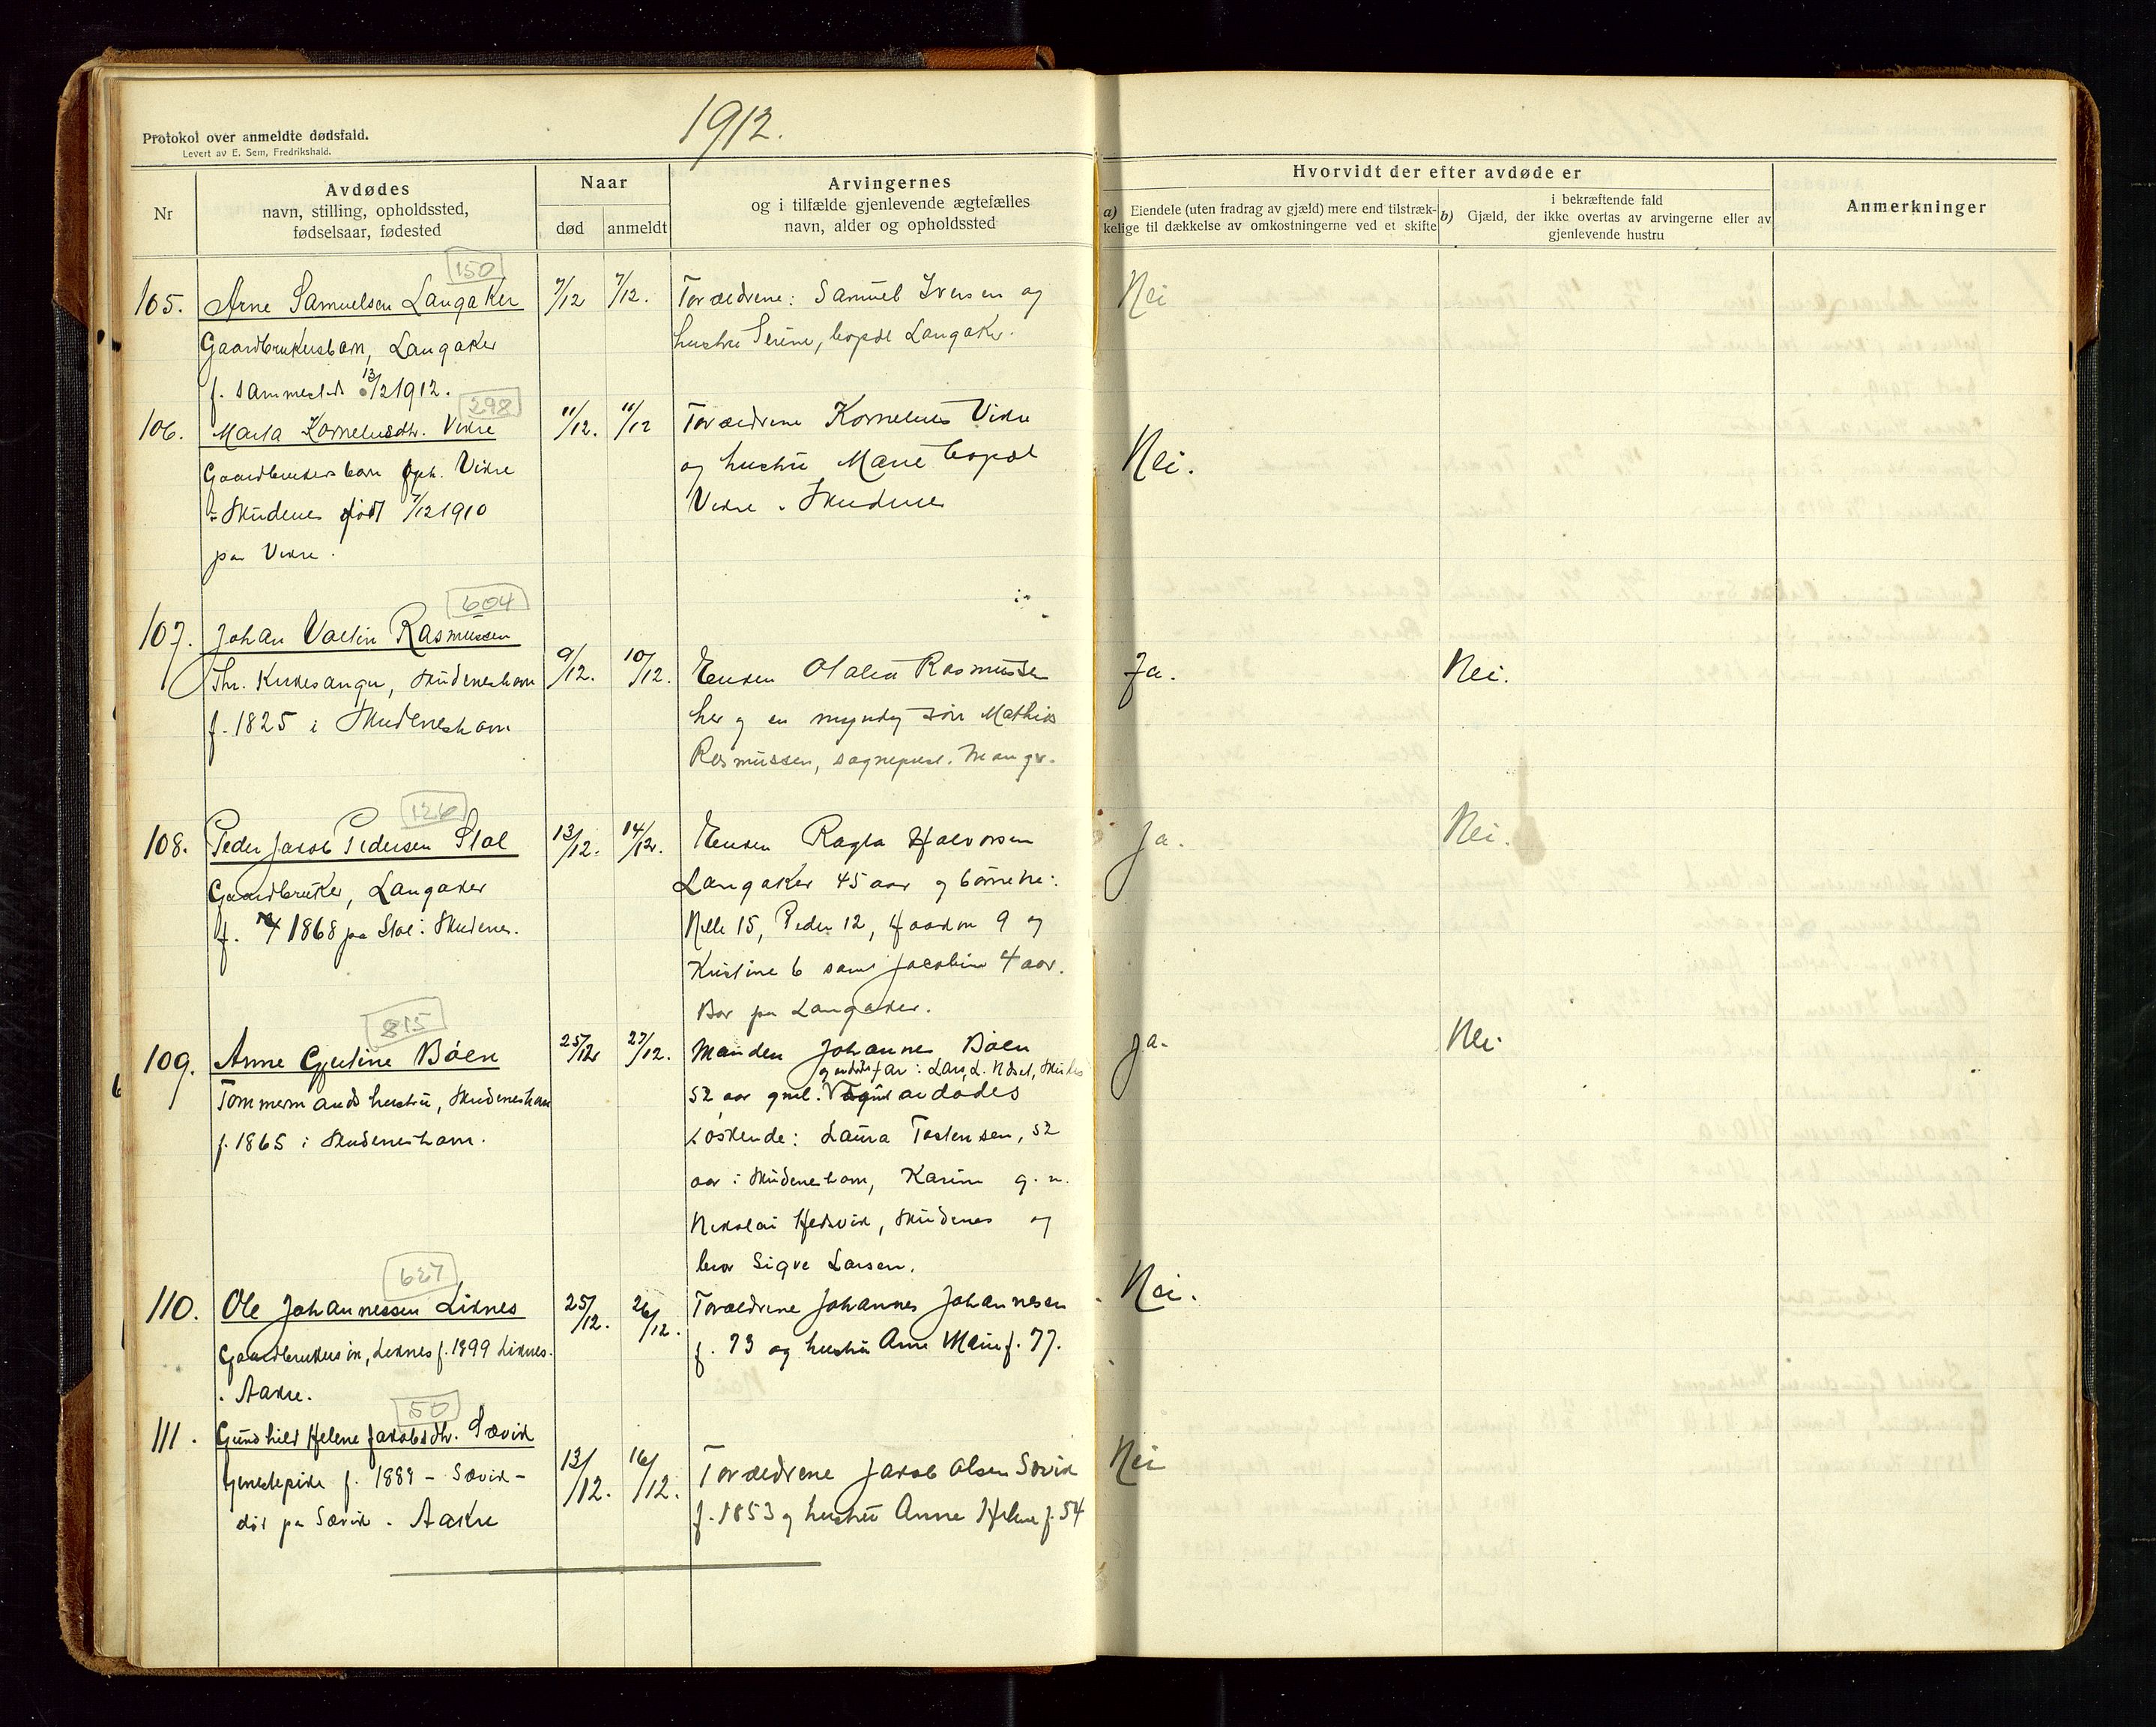 1912.
Protokol over anmeldte dødsfald.
Levert av E. Sem, Fredrikshald.
Nr
Avdødes
navn, stilling, opholdssted,
fødselsaar, fødested
Naar
død
anmeldt
Arvingernes
og i tilfælde gjenlevende ægtefælles
navn, alder og opholdssted
Hvorvidt der efter avdøde er
a) Eiendele (uten fradrag av gjæld) mere end tilstræk-
kelige til dækkelse av omkostningerne ved et skifte
i bekræftende fald
b) Gjæld, der ikke overtas av arvingerne eller av
gjenlevende hustru
Anmerkninger
150
105. Arne Samuelsen Langaker
Gaardbrukersbarn, Langaker
f. sammesteds 13/12 1912.
7/12
7/12.
Forældrene: Samuel Iversen og
hustru Serine, bopæl Langaker.
Nei
298
106. Marta Kornelusdtr. Vikre
Gaardbrukersbarn oph. Vikre
i Skudenes født 7/12 1910
paa Vikre.
11/12.
11/12
Forældrene Kornelius Vikre
og hustru Marie bopæl
Vikre i Skudenes
Nei.
604
107. Johan Valtin Rasmussen
Fhr. Kirkesanger, Skudeneshavn
f. 1825 i Skudeneshavn
9/12.
10/12.
Enken Olalia Rasmussen
her og en myndig søn Mathias
Rasmussen, sognepræst. Manger.
Ja.
Nei.
126
108. Peder Jakob Pedersen Stol
Gaardbruker, Langaker
f. 1868 paa Stol i Skudenes.
13/12.
14/12.
Enken Ragla Halvorsen
Langaker 45 aar og børnene:
Nelle 15, Peder 12, Haakon 9 og
Kristine 6 samt Jacobine 4 aar.
Bor paa Langaker.
Ja.
Nei.
815
109. Anne Gjertine Bøen
Tømmermands hustru, Skudeneshavn
f. 1865 i Skudeneshavn.
25/12
27/12.
Manden Johannes Bøen
og avdødes far: Lars L. Skudes
52 aar gml. avdødes
søskende: Laura Tostensen, 52
aar i Skudeneshavn, Karine g. m.
Nikolai Hedvik, Skudenes og
bror Sigve Larsen.
Ja.
Nei.
627
110. Ole Johannessen Liknes
Gaardbrukersøn, Liknes f. 1899 Liknes.
i Aakre.
25/12.
26/12.
Forældrene Johannes Johannesen
f. 73 og hustru Anne Marie f. 77.
Nei.
50
111. Gundhild Helene Jakobsdtr. Sævik
tjenestepike f. 1889 - Sævik -
død paa Sævik i Aakre
13/12.
16/12.
Forældrene Jakob Olsen Sævik
f. 1853 og hustru Anne Helene f. 54
Nei